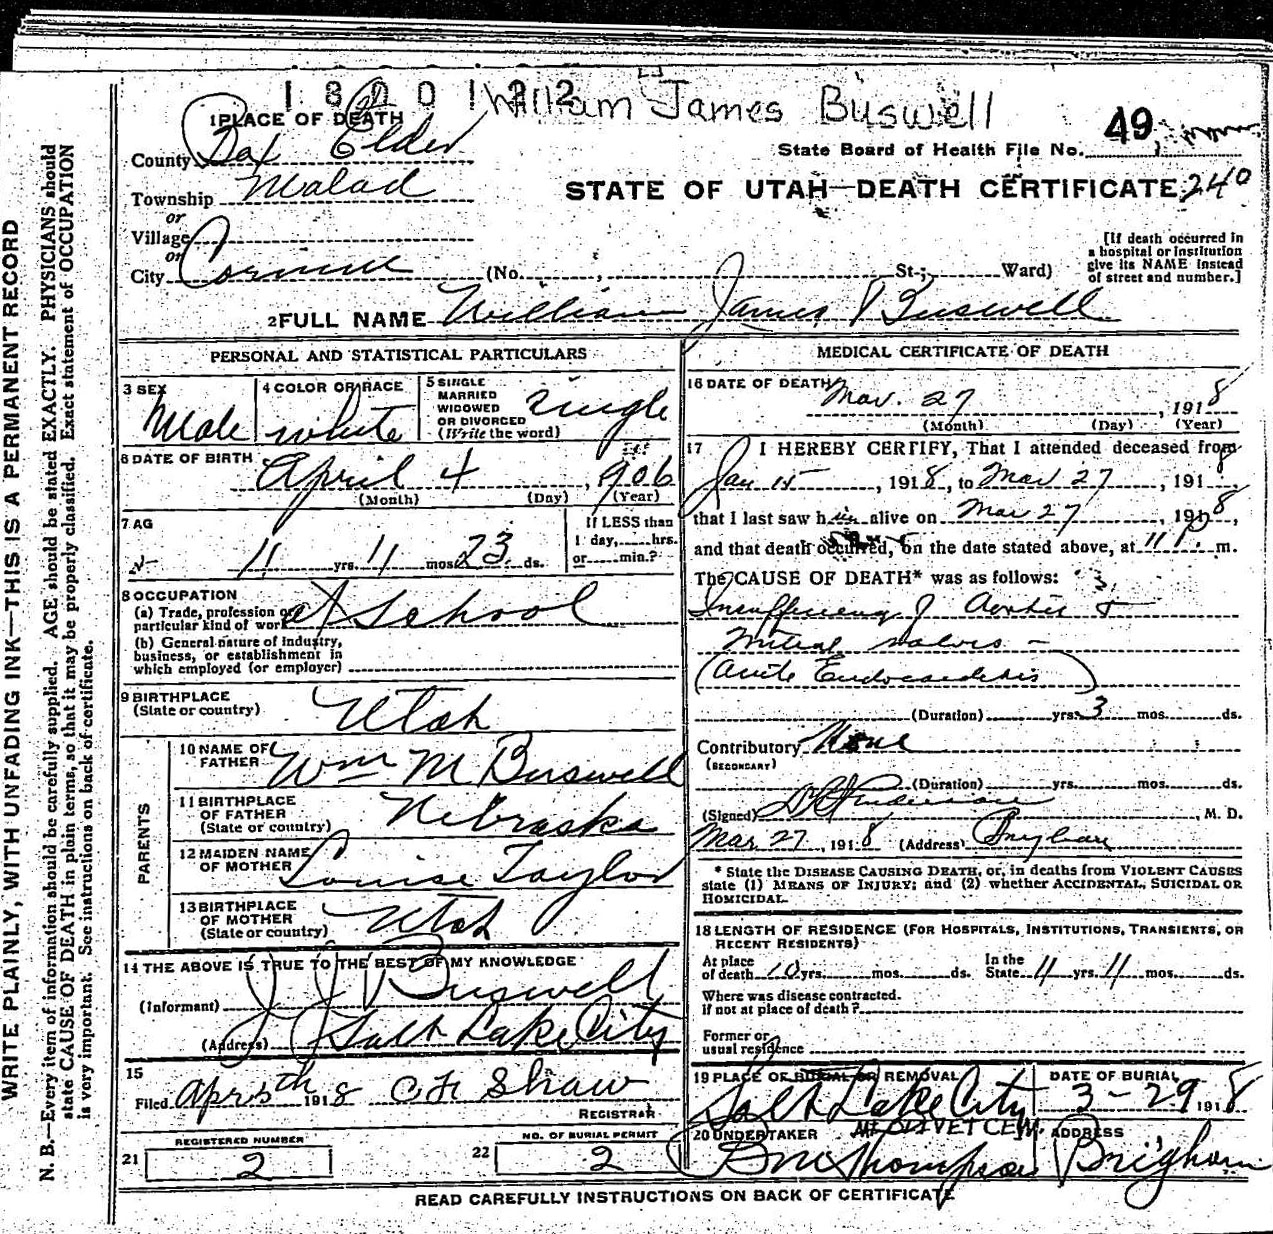 1800122 William James Buswell
1 PLACE OF DEATH
49
County Box Elder
State Board of Health File No.
Township Malad
STATE OF UTAH—DEATH CERTIFICATE 240
or
Village
or
City Corinne (No. St.; Ward)
[If death occurred in
a hospital or institution
give its NAME instead
of street and number.]
2 FULL NAME William James Buswell
PERSONAL AND STATISTICAL PARTICULARS
3 SEX Male
4 COLOR OR RACE white
5 SINGLE
MARRIED
WIDOWED
OR DIVORCED
(Write the word) single
6 DATE OF BIRTH April 4, 1906
(Month) (Day) (Year)
7 AG
11 yrs. 11 mos. 23 ds.
If LESS than
1 day, hrs.
or min.?
8 OCCUPATION
(a) Trade, profession or
particular kind of work at school
(b) General nature of industry,
business, or establishment in
which employed (or employer)
9 BIRTHPLACE
(State or country) Utah
PARENTS
10 NAME OF
FATHER Wm M Buswell
11 BIRTHPLACE
OF FATHER
(State or country) Nebraska
12 MAIDEN NAME
OF MOTHER Louise Taylor
13 BIRTHPLACE
OF MOTHER
(State or country) Utah
14 THE ABOVE IS TRUE TO THE BEST OF MY KNOWLEDGE
(Informant) J J Buswell
(Address) Salt Lake City
15
Filed Apr 5th 1918 C H Shaw
REGISTRAR
REGISTERED NUMBER
21 2
NO. OF BURIAL PERMIT
22 2
MEDICAL CERTIFICATE OF DEATH
16 DATE OF DEATH Mar. 27, 1918
(Month) (Day) (Year)
17 I HEREBY CERTIFY, That I attended deceased from
Jan 15, 1918, to Mar 27, 1918,
that I last saw him alive on Mar 27, 1918,
and that death occurred, on the date stated above, at 11 P. m.
The CAUSE OF DEATH* was as follows:
Insufficiency of Aortic +
Mitral valves -
(Acute Endocarditis)
(Duration) yrs. 3 mos. ds.
Contributory None
(SECONDARY)
(Duration) yrs. mos. ds.
(Signed) Anderson, M. D.
Mar 27, 1918 (Address) Brigham
* State the DISEASE CAUSING DEATH, or, in deaths from VIOLENT CAUSES
state (1) MEANS OF INJURY; and (2) whether ACCIDENTAL, SUICIDAL OR
HOMICIDAL.
18 LENGTH OF RESIDENCE (FOR HOSPITALS, INSTITUTIONS, TRANSIENTS, OR
RECENT RESIDENTS)
At place
of death 10 yrs. mos. ds. In the
State 11 yrs. 11 mos. ds.
Where was disease contracted.
if not at place of death?
Former or
usual residence
19 PLACE OF BURIAL OR REMOVAL
Salt Lake City
MT OLIVET CEM.
DATE OF BURIAL
3-29 1918
20 UNDERTAKER
Thompson
ADDRESS
Brigham
READ CAREFULLY INSTRUCTIONS ON BACK OF CERTIFICATE
WRITE PLAINLY, WITH UNFADING INK—THIS IS A PERMANENT RECORD
N. B.—Every item of information should be carefully supplied. AGE should be stated EXACTLY. PHYSICIANS should
state CAUSE OF DEATH in plain terms, so that it may be properly classified. Exact statement of OCCUPATION
is very important. See instructions on back of certificate.